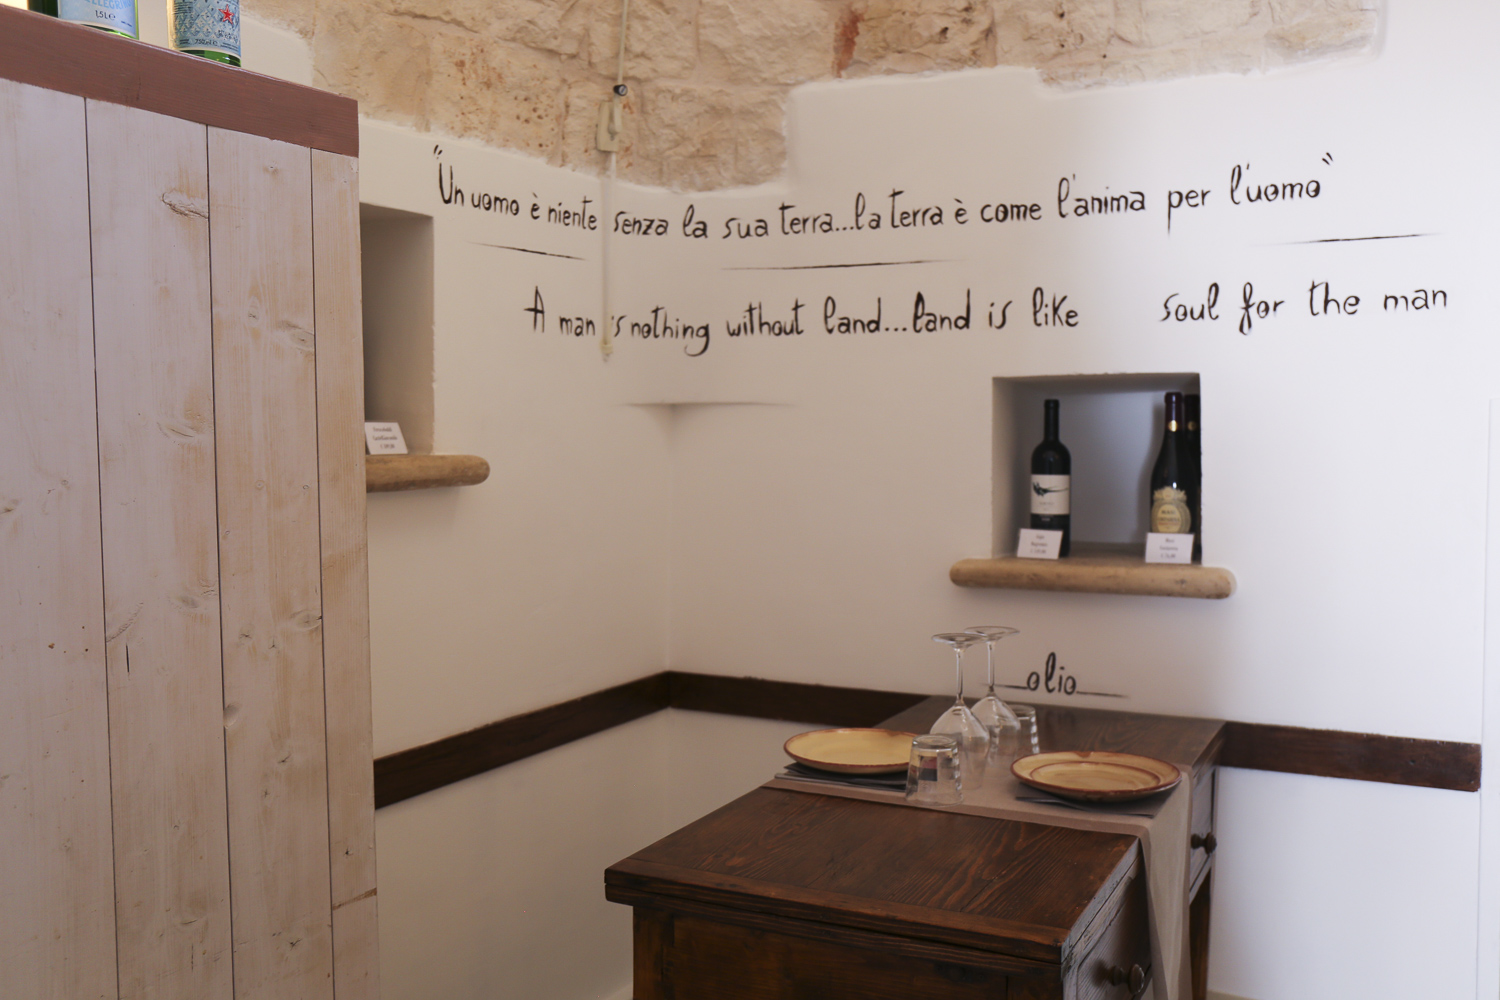 "Un uomo è niente senza la sua terra...la terra è come l'anima per l'uomo"
A man is nothing without land...land is like soul for the man
olio
1,5L e
750ml e